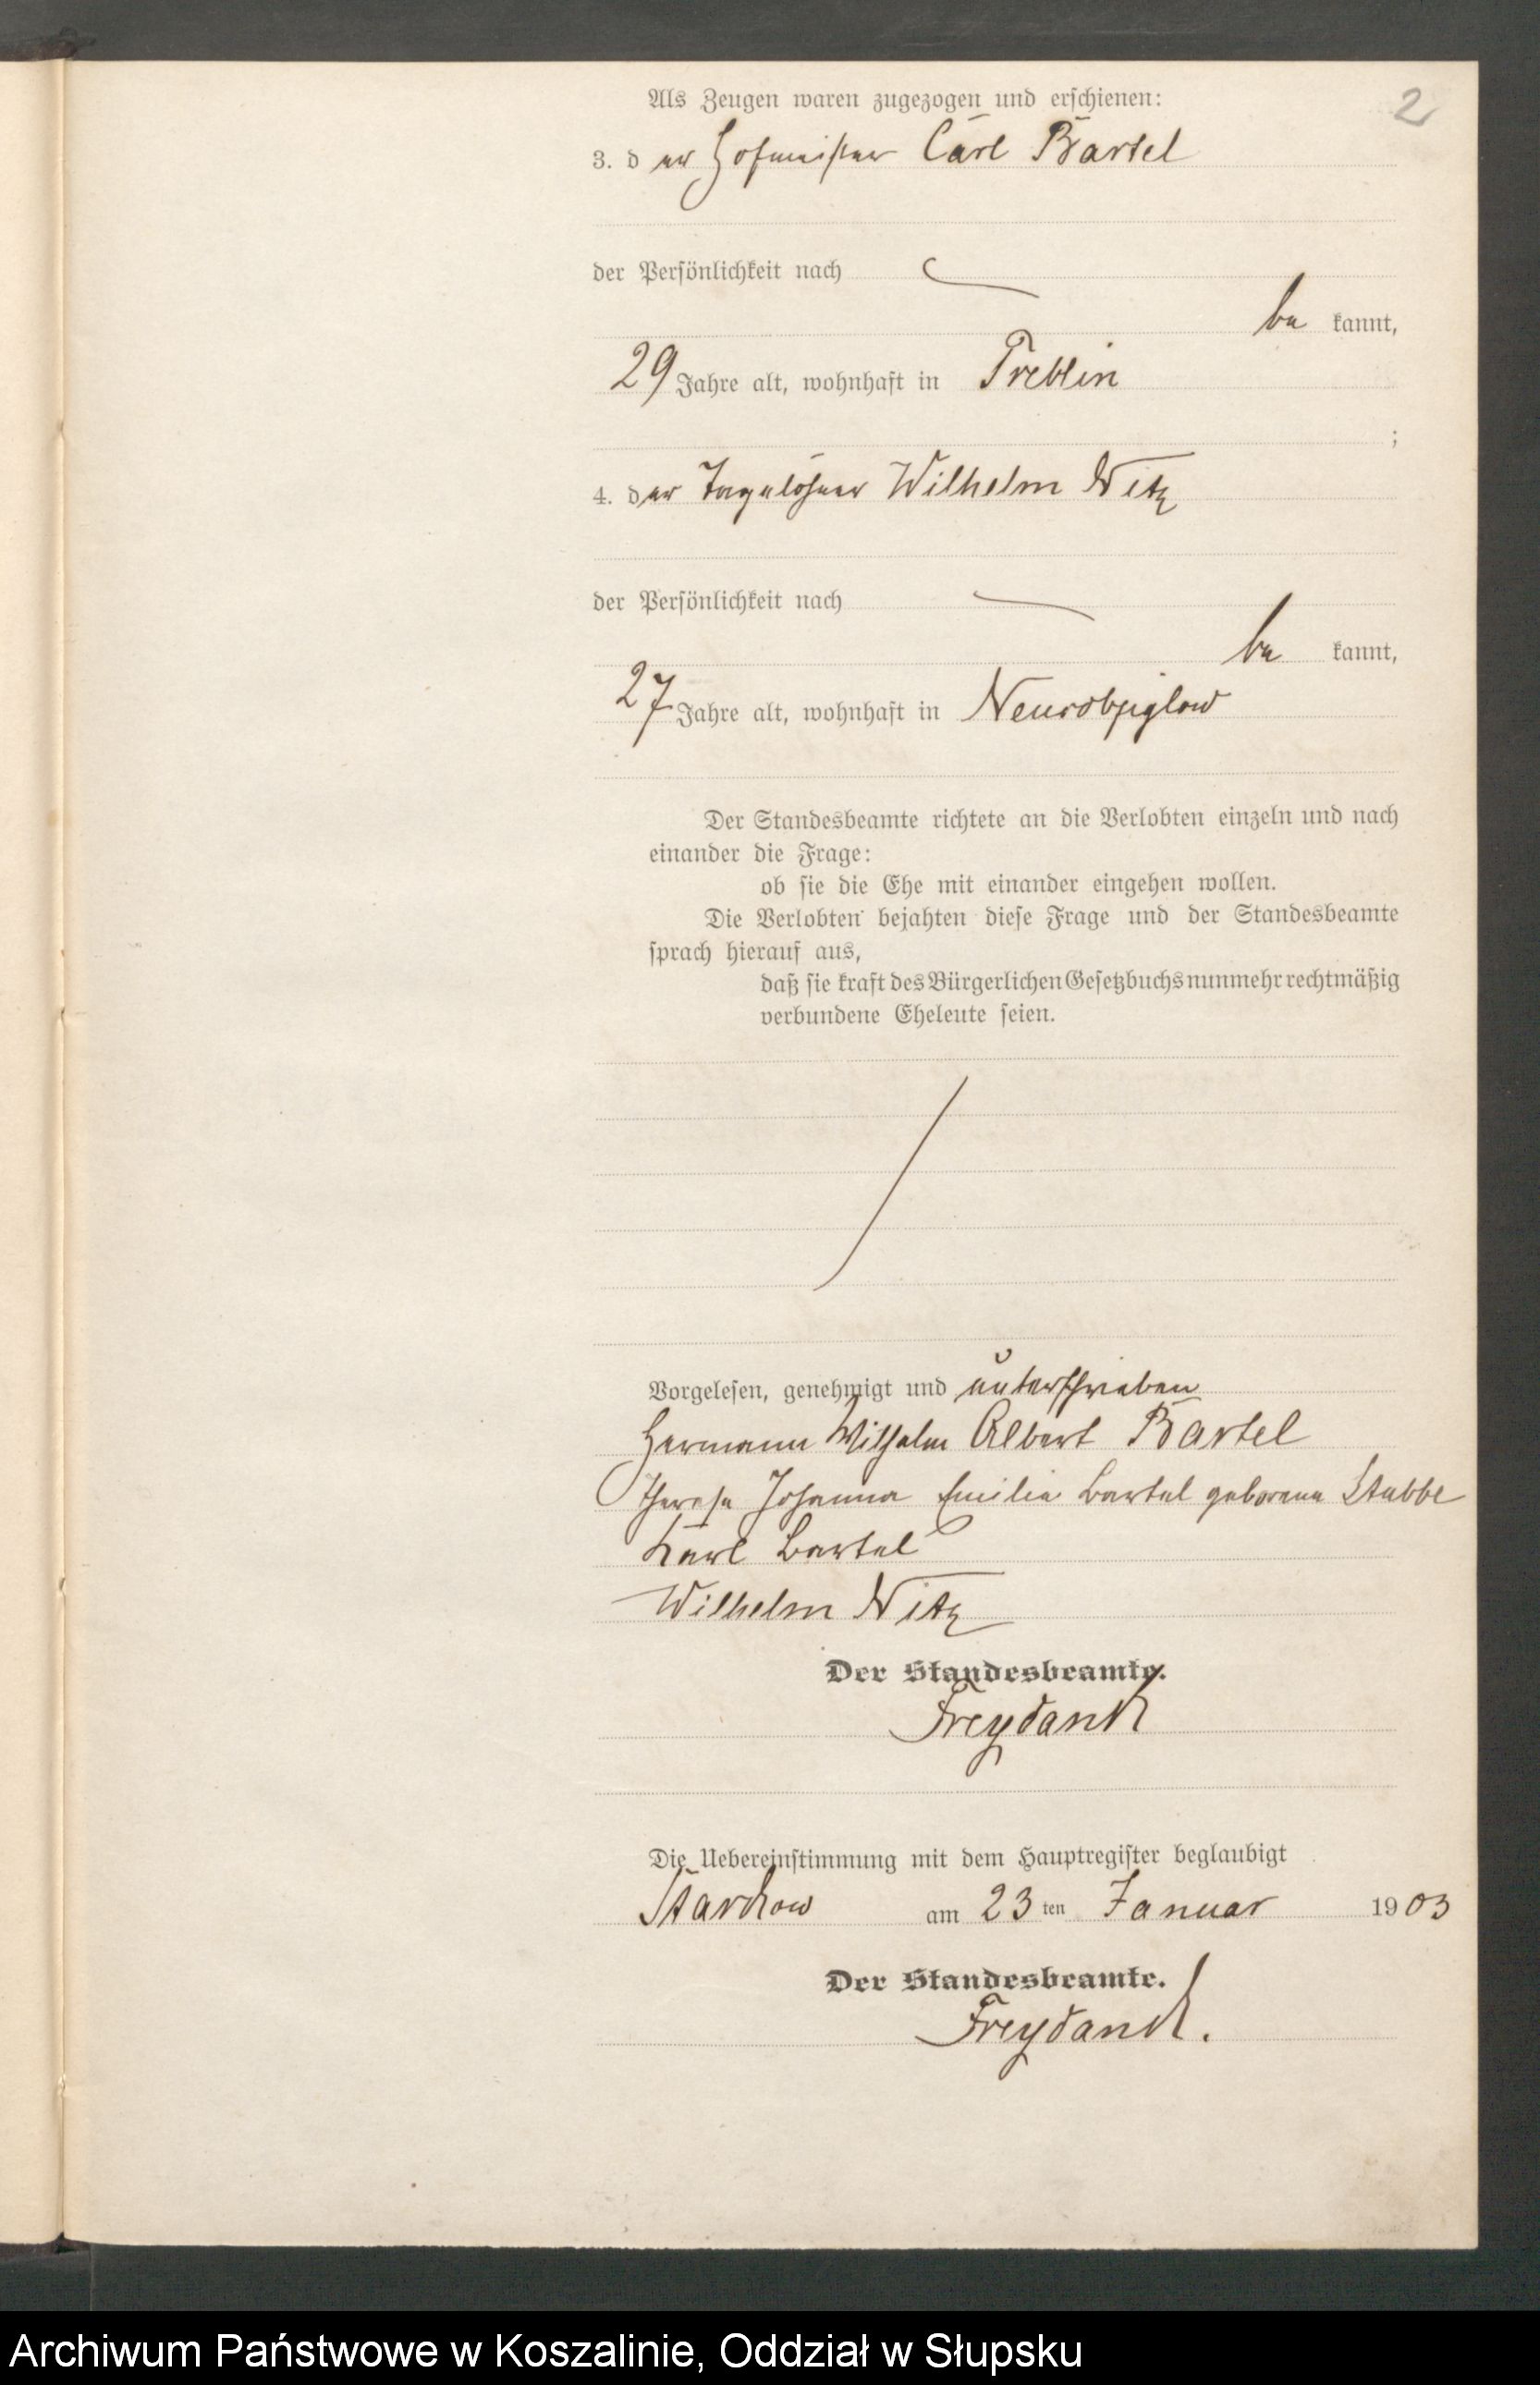 2
Als Zeugen waren zugezogen und erschienen:
3. der Hofmeister Carl Bartel
der Persönlichkeit nach
be kannt,
29 Jahre alt, wohnhaft in Treblin
;
4. der Tagelöhner Wilhelm Nitz
der Persönlichkeit nach
be kannt,
27 Jahre alt, wohnhaft in
Der Standesbeamte richtete an die Verlobten einzeln und nach
einander die Frage:
ob sie die Ehe mit einander eingehen wollen.
Die Verlobten bejahten diese Frage und der Standesbeamte
sprach hierauf aus,
daß sie kraft des Bürgerlichen Gesetzbuchs nunmehr rechtmäßig
verbundene Eheleute seien.
Vorgelesen, genehmigt und unterschrieben
Hermann Wilhelm Albert Bartel
Therese Johanna Emilie Bartel geborene Stubbe
Karl Bartel
Wilhelm Nitz
Der Standesbeamte.
Freydank
Die Uebereinstimmung mit dem Hauptregister beglaubigt
Starkow am 23 ten Januar 1903
Der Standesbeamte.
Freydank.
Archiwum Państwowe w Koszalinie, Oddział w Słupsku